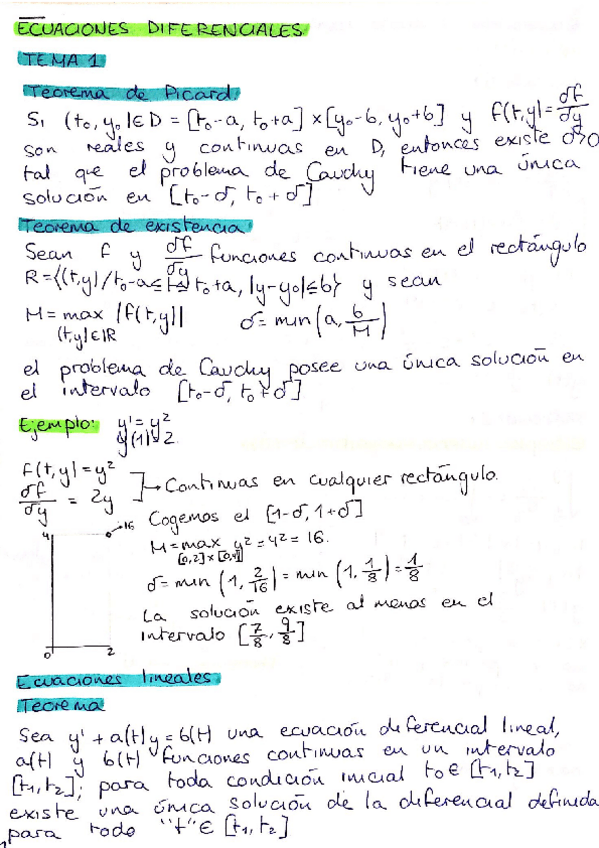 ECUACIONES DIFERENCIALES
TEMA 1
Teorema de Picard
Si (t₀, y₀) ∈ D = [t₀-a, t₀+a] × [y₀-b, y₀+b] y f(t,y) = σf/σy
son reales y continuas en D, entonces existe σ>0
tal que el problema de Cauchy tiene una única
solución en [t₀-σ, t₀+σ]
Teorema de existencia:
Sean f y σf/σy funciones continuas en el rectángulo
R = {(t,y) / t₀-a ≤ t ≤ t₀+a, |y-y₀| ≤ b} y sean
M = max |f(t,y)| σ = min (a, b/M)
(t,y) ∈ R
el problema de Cauchy posee una única solución en
el intervalo [t₀-σ, t₀+σ]
Ejemplo: y' = y²
y(1) = 2.
f(t,y) = y²
σf/σy = 2y → Continuas en cualquier rectángulo.
Cogemos el [1-σ, 1+σ]
4 16
M = max y² = 4² = 16.
[0,2] × [0,4]
σ = min (1, 2/16) = min (1, 1/8) = 1/8
La solución existe al menos en el
intervalo [7/8, 9/8]
0 2
Ecuaciones lineales
Teorema
Sea y' + a(t)y = b(t) una ecuación diferencial lineal,
a(t) y b(t) funciones continuas en un intervalo
[t₁, t₂]; para toda condición inicial t₀ ∈ [t₁, t₂]
existe una única solución de la diferencial definida
para todo "t" ∈ [t₁, t₂]